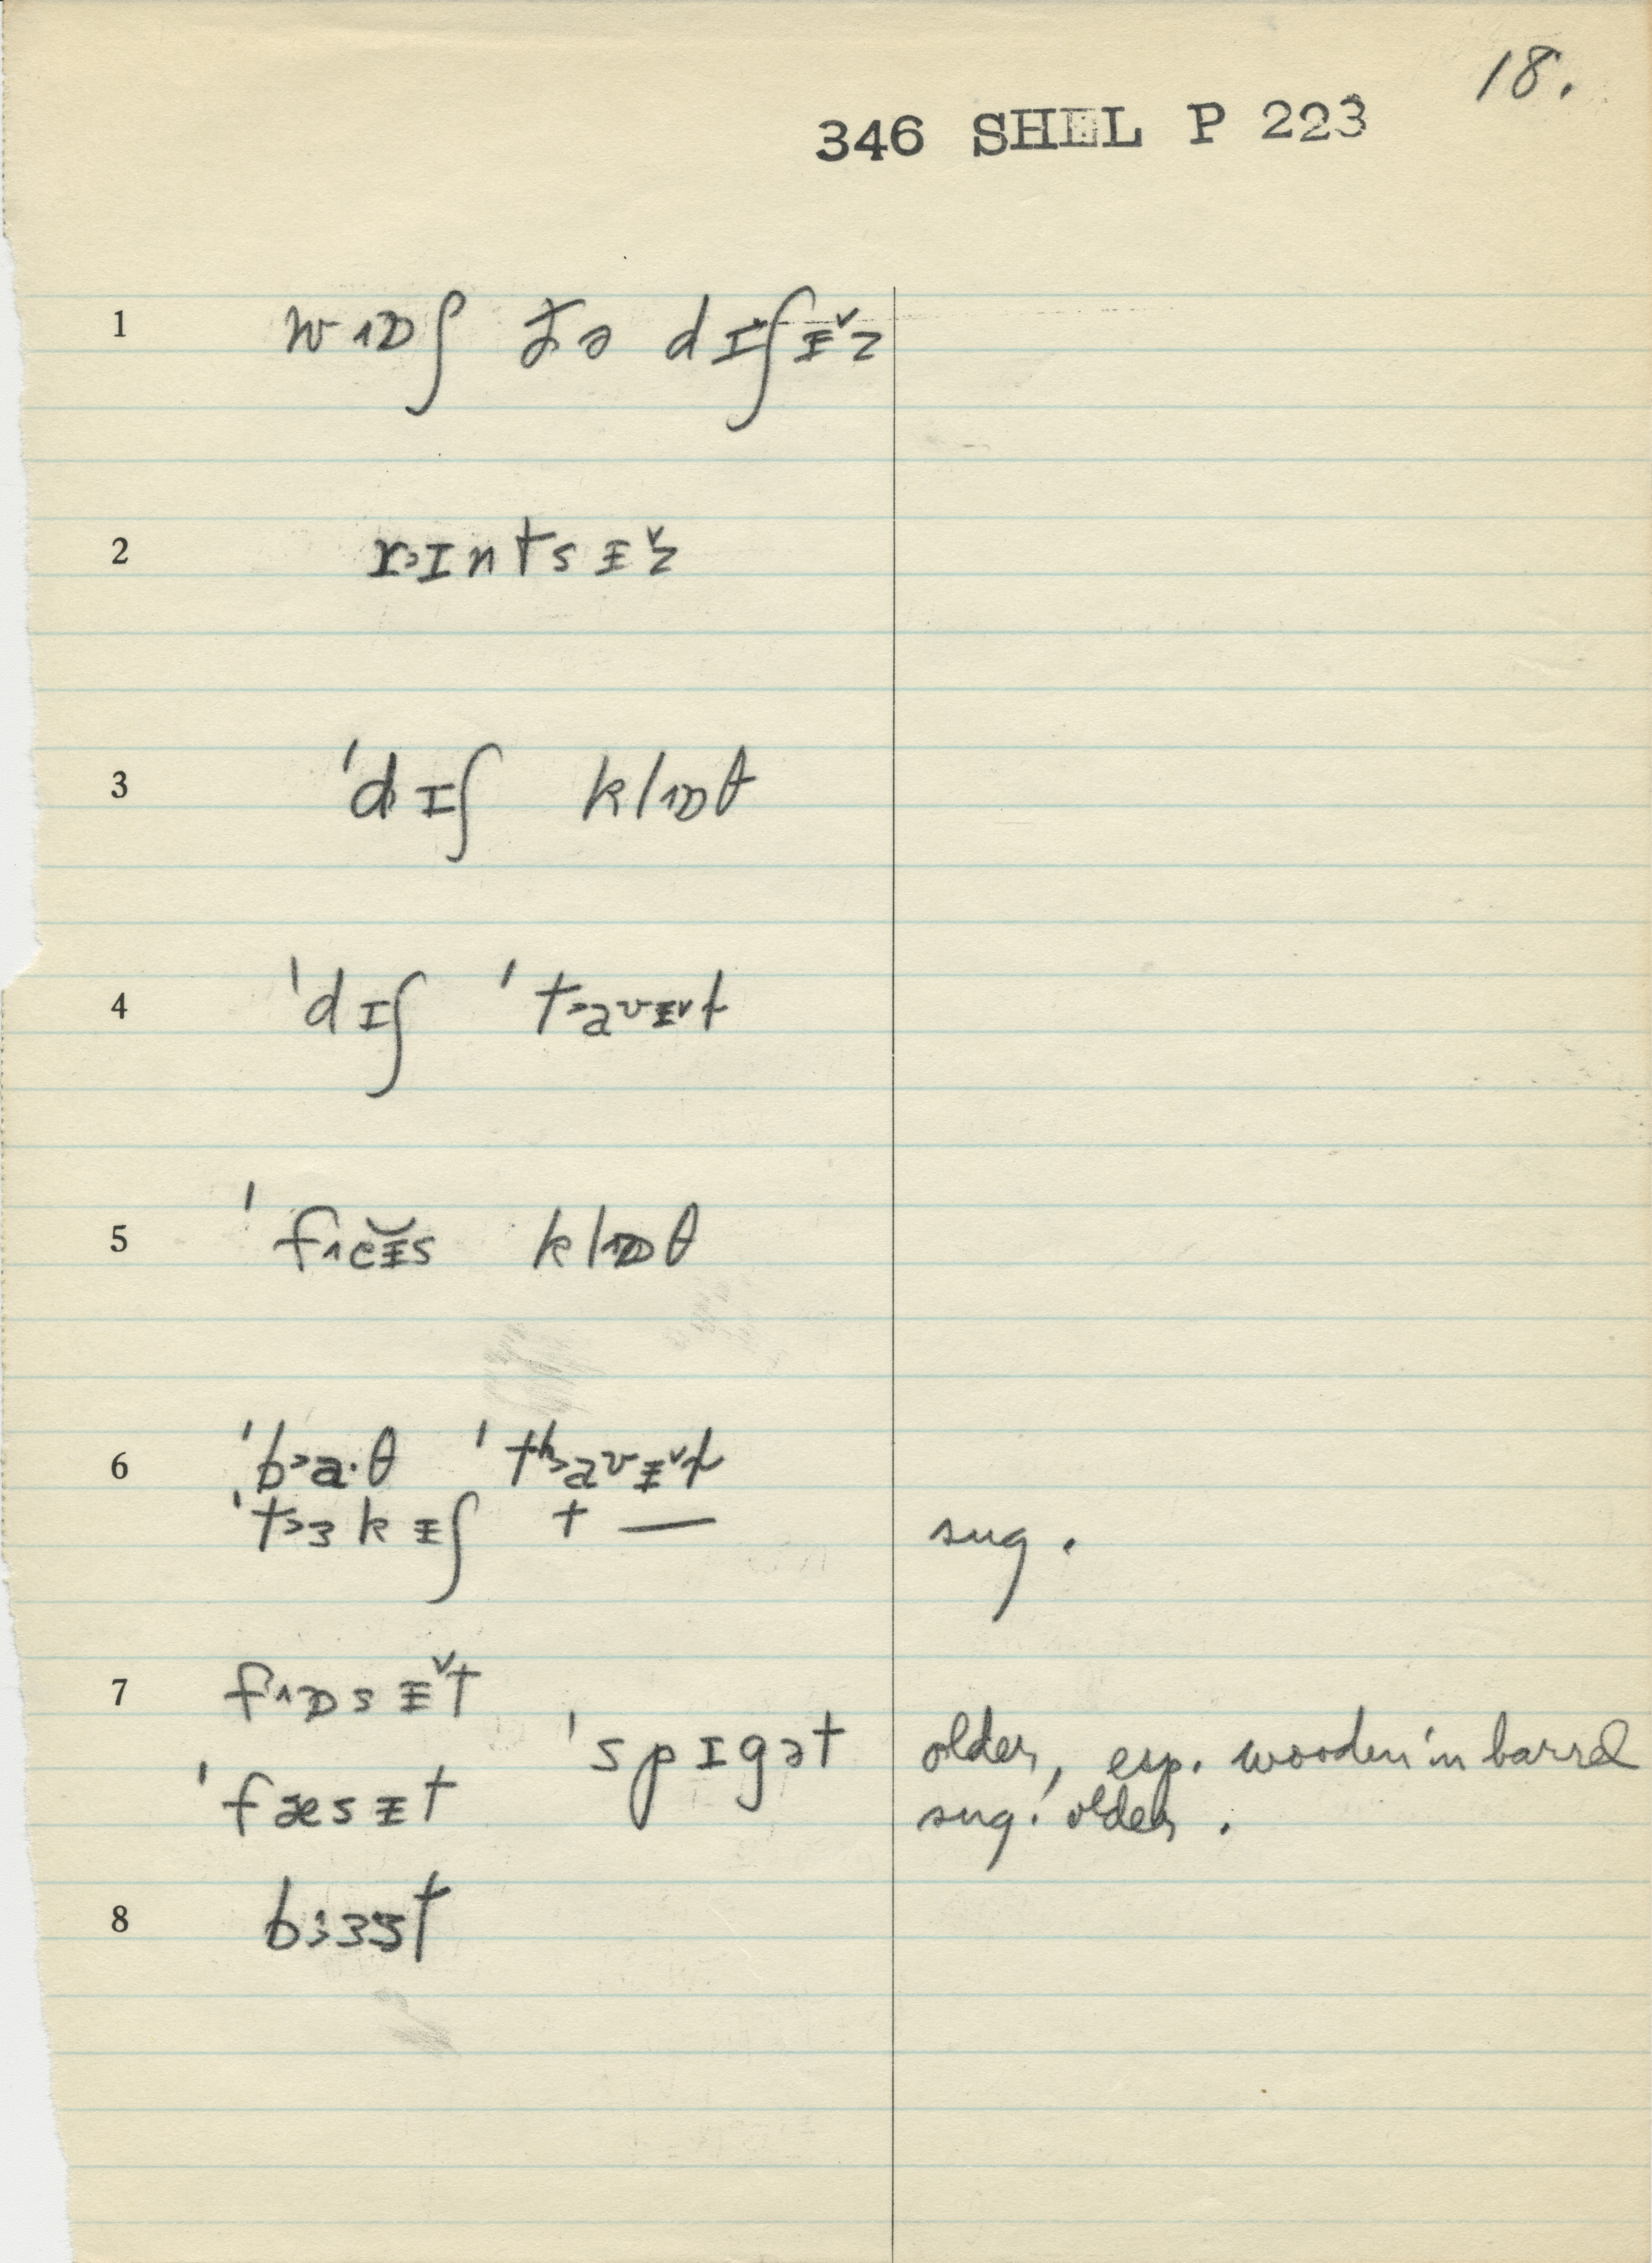 18.
346 SHEL P 223
1 w˄ɒʃ ðə dɪʃɪ̵ˇz
2 r˃ɪntsɪ̵ˇz
3 ˈdɪʃ kl˄ɒθ
4 ˈdɪʃ ˈt˃aʊɪ̵ˇt
5 ˈf˄eɪ̵̆s kl˄ɒθ
6 ˈb˃a·θ ˈtʰ˃aʊɪ̵ˇt
ˈt˃ɜkɪ̵ʃ + — sug.
7 f˄ɒsɪ̵ˇt
ˈspɪgət older, esp. wooden in barrel
ˈfæsɪ̵t sug. older.
8 b